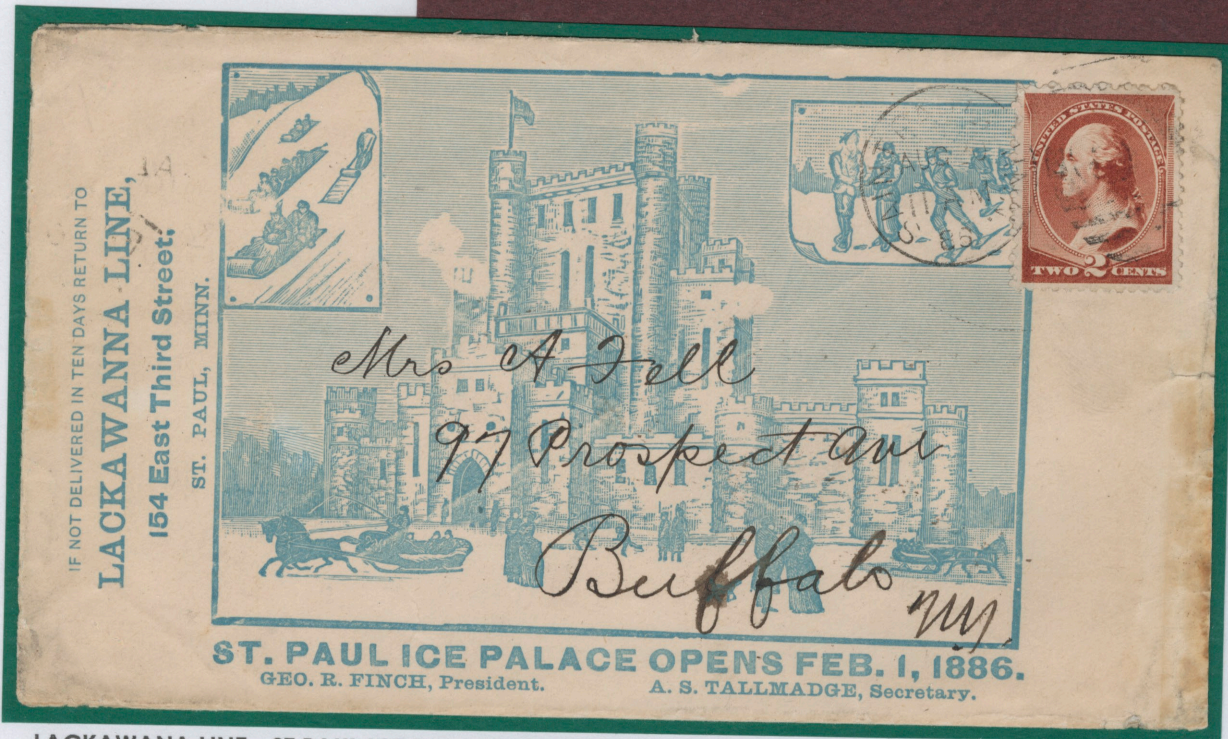 IF NOT DELIVERED IN TEN DAYS RETURN TO
LACKAWANNA LINE,
154 East Third Street,
ST. PAUL, MINN.
UNITED STATES POSTAGE
TWO 2 CENTS
Mrs A Fell
97 Prospect Ave
Buffalo
NY.
ST. PAUL ICE PALACE OPENS FEB. 1, 1886.
GEO. R. FINCH, President.
A. S. TALLMADGE, Secretary.